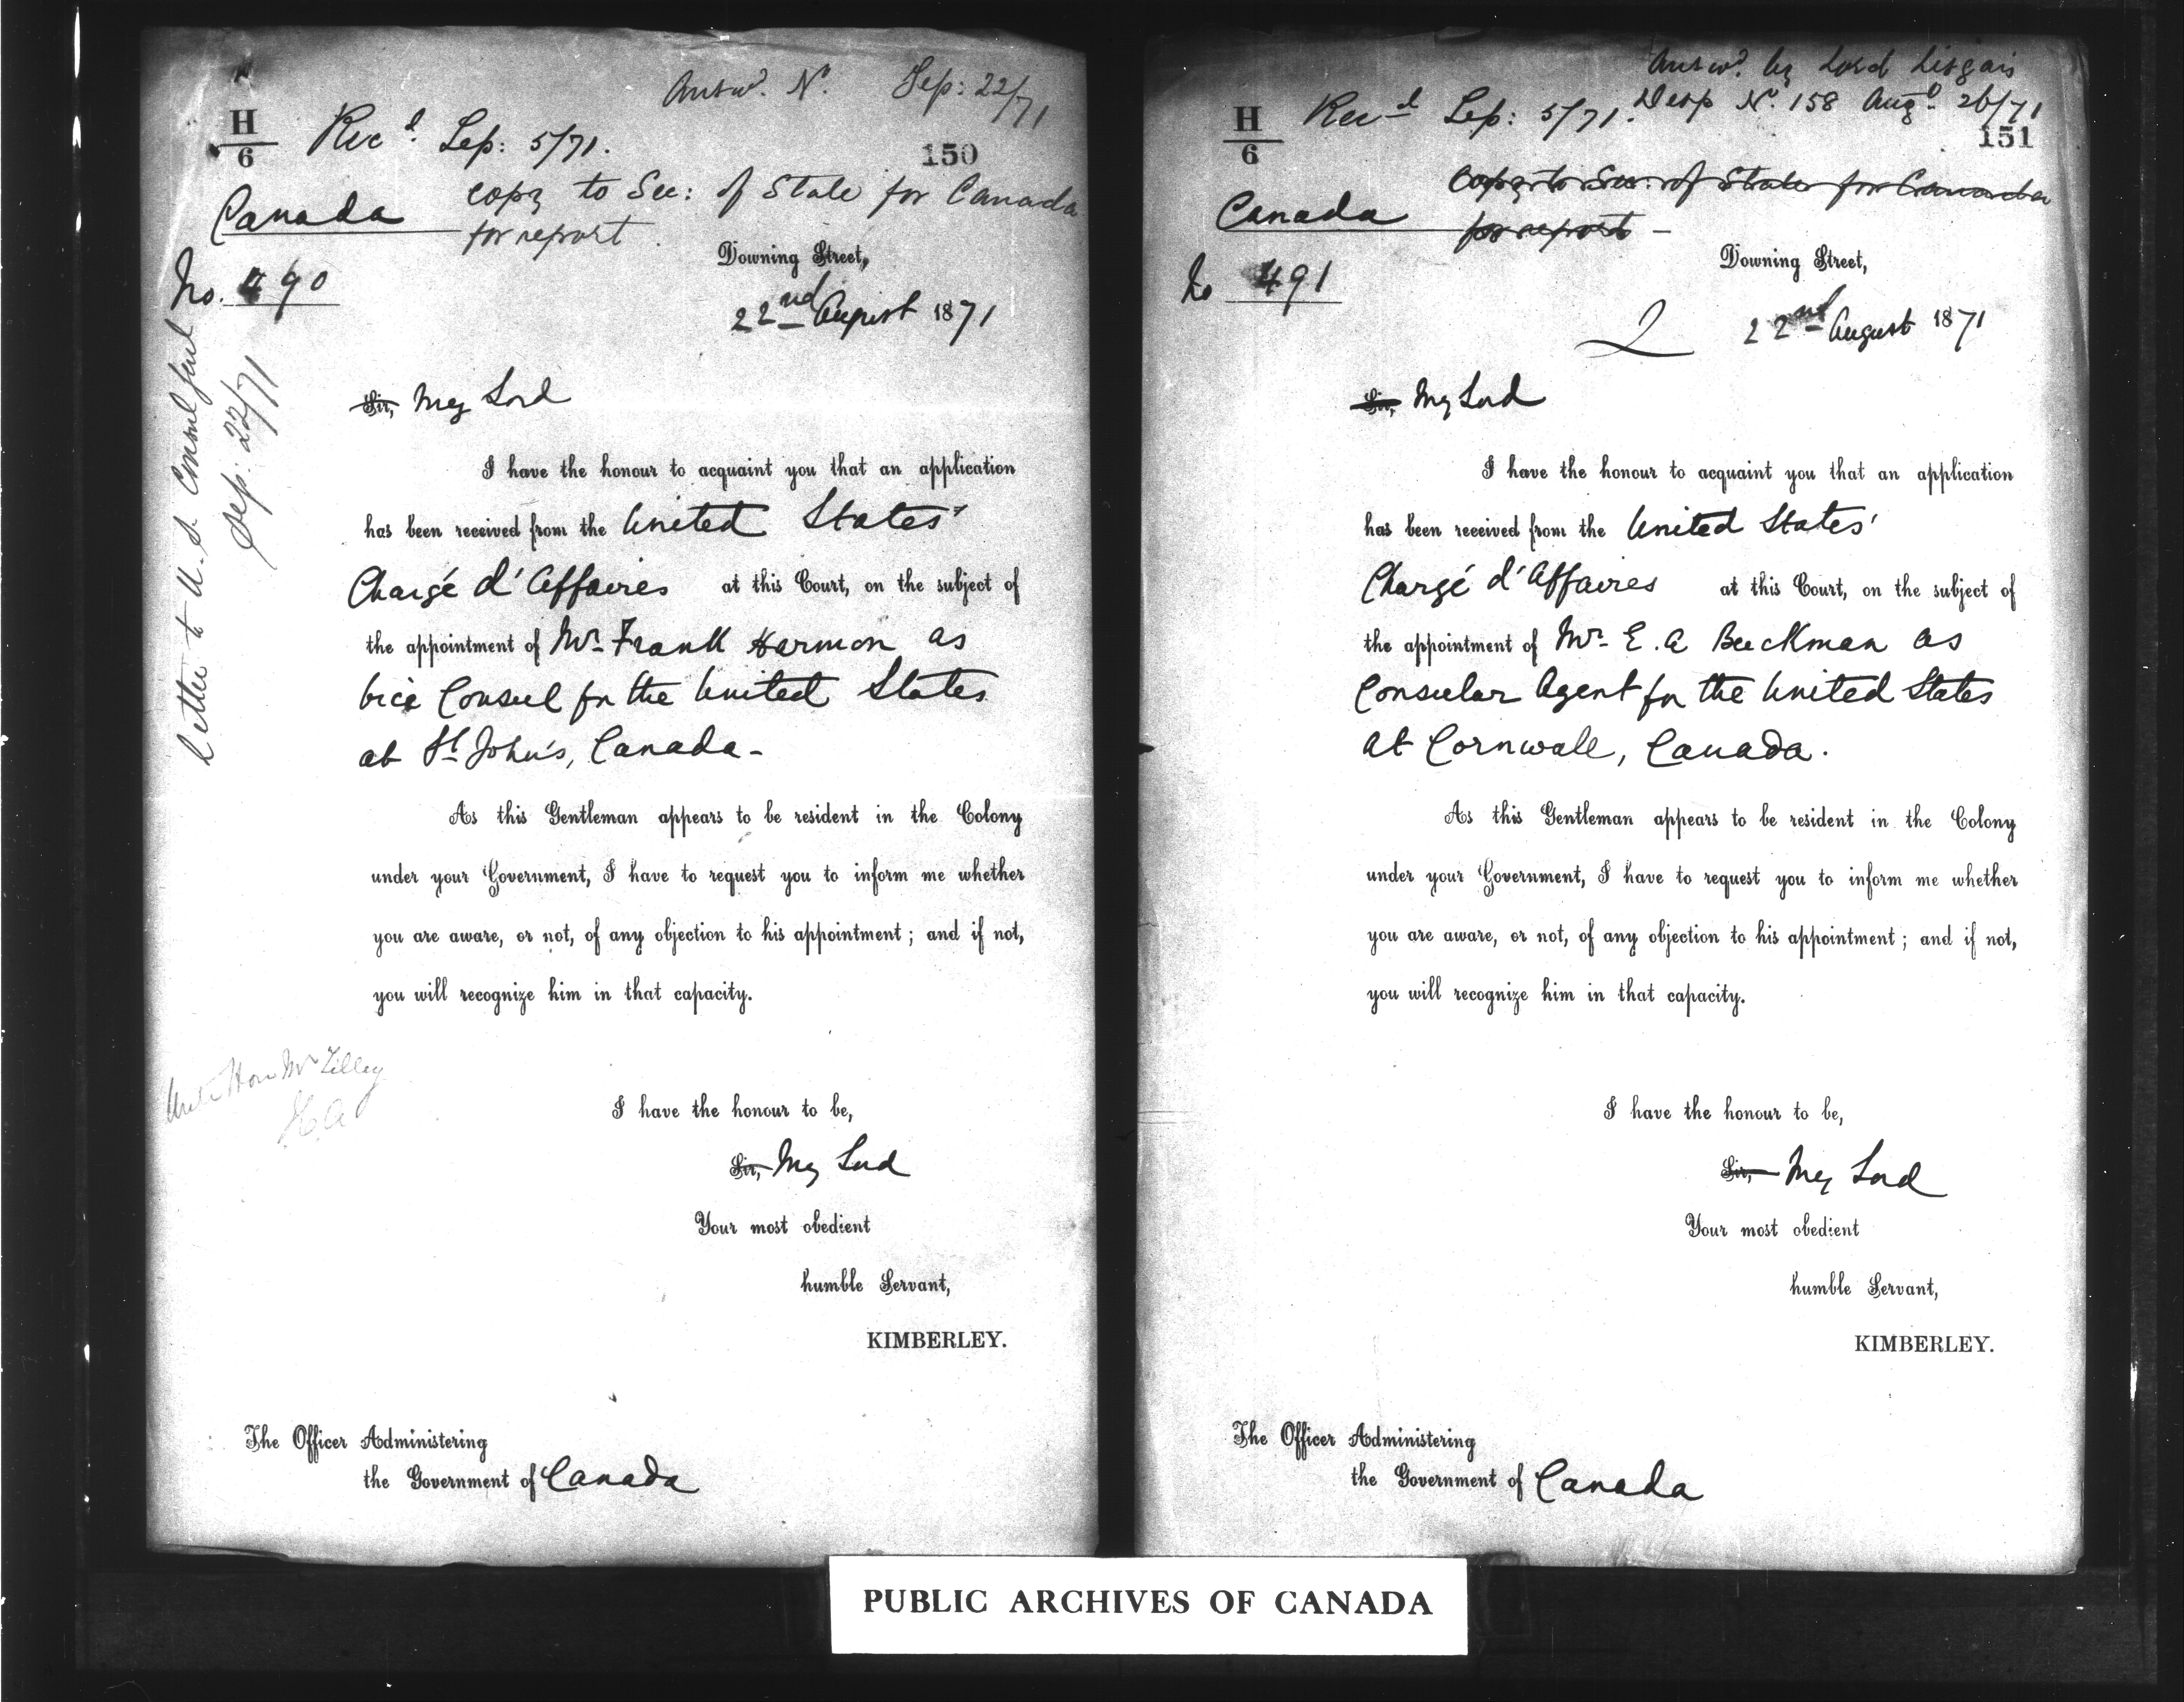 Answd. No. Sep: 22/71
H
6
Recd. Sep: 5/71.
150
copy to Sec: of State for Canada
for report.
Canada
No. 490
Downing Street,
22nd August 1871
Letter to U.S. Consul Genl
Sep: 22/71
Sir, My Lord
I have the honour to acquaint you that an application
has been received from the United States'
Chargé d'Affaires at this Court, on the subject of
the appointment of Mr. Frank Harmon as
Vice Consul for the United States
at St. John's, Canada -
As this Gentleman appears to be resident in the Colony
under your Government, I have to request you to inform me whether
you are aware, or not, of any objection to his appointment; and if not,
you will recognize him in that capacity.
Hon Mr Tilley
I have the honour to be,
Sir, My Lord
Your most obedient
humble Servant,
KIMBERLEY.
The Officer Administering
the Government of Canada
Answd. by Lord Lisgar's
Desp No. 158 Augt. 26/71
H
6
Recd Sep: 5/71.
151
copy to Sec: of State for Canada
for report -
Canada
No 491
Downing Street,
2
22nd August 1871
Sir, My Lord
I have the honour to acquaint you that an application
has been received from the United States'
Chargé d'Affaires at this Court, on the subject of
the appointment of Mr. E. A Beeckman as
Consular Agent for the United States
at Cornwall, Canada.
As this Gentleman appears to be resident in the Colony
under your Government, I have to request you to inform me whether
you are aware, or not, of any objection to his appointment; and if not,
you will recognize him in that capacity.
I have the honour to be,
Sir, My Lord
Your most obedient
humble Servant,
KIMBERLEY.
The Officer Administering
the Government of Canada
PUBLIC ARCHIVES OF CANADA